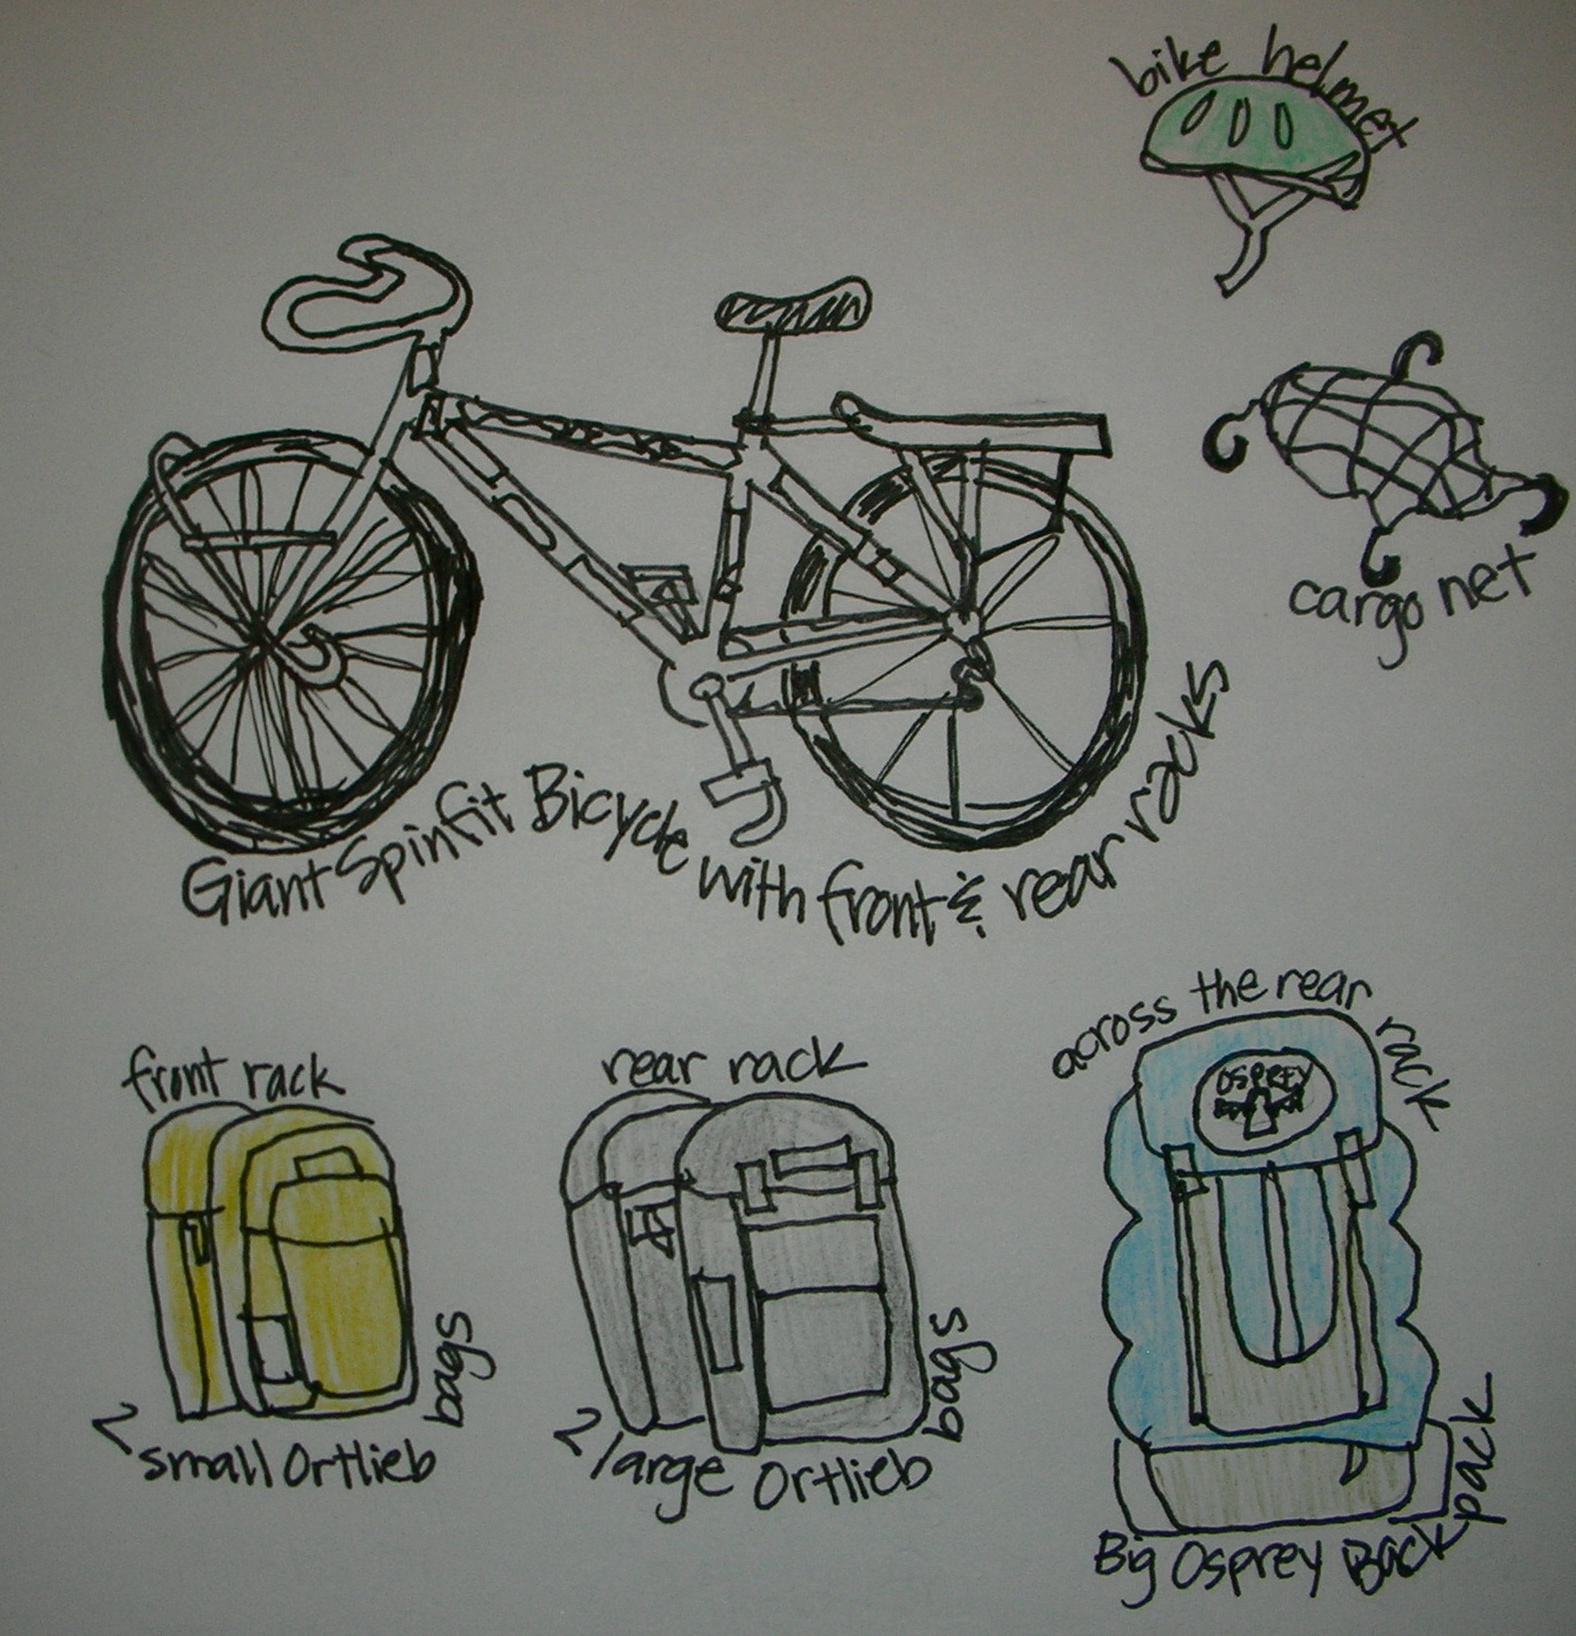 bike helmet
cargo net
Giant Spinfit Bicycle with front & rear racks
front rack
2 small Ortlieb bags
rear rack
2 large Ortlieb bags
across the rear rack
OSPREY
Big Osprey Backpack